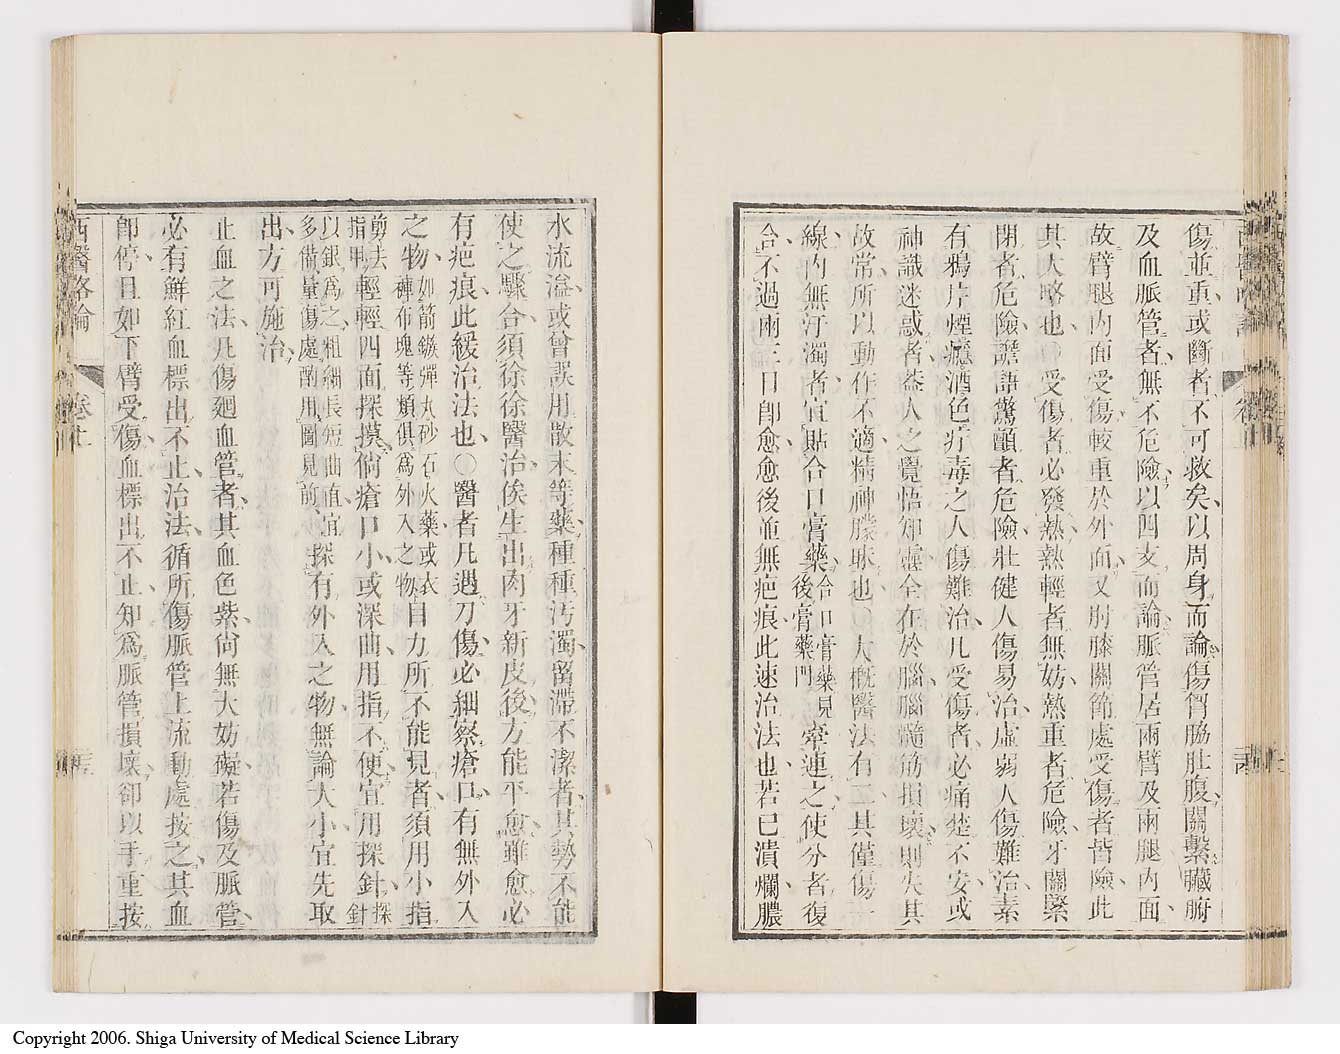 傷並重或斷者不可救矣以周身而論傷胷脇肚腹關繫臟腑
及血脈管者無不危險以四支而論脈管居兩臂及兩腿內面
故臂腿內面受傷較重於外面又肘膝關節處受傷者皆險此
其大略也○受傷者必發熱熱輕者無妨熱重者危險牙關緊
閉者危險譫語驚顫者危險壯健人傷易治虛弱人傷難治素
有鴉片煙癮酒色疔毒之人傷難治凡受傷者必痛楚不安或
神識迷惑者葢人之覺悟知靈全在於腦腦髓筋損壞則失其
故常所以動作不適精神矇昧也○大概醫法有二其僅傷一
線內無汙濁者宜貼合口膏藥合口膏藥見後膏藥門牽連之使分者復
合不過兩三日卽愈愈後並無疤痕此速治法也若已潰爛膿
水流溢或曾誤用散末等藥種種汚濁留滯不潔者其勢不能
使之驟合須徐徐醫治俟生出肉牙新皮後方能平愈雖愈必
有疤痕此緩治法也○醫者凡遇刀傷必細察瘡口有無外入
之物如箭鏃彈丸砂石火藥或衣褲布塊等類俱爲外入之物目力所不能見者須用小指
剪去指甲輕輕四面探摸倘瘡口小或深曲用指不便宜用探針探針
以銀爲之粗細長短曲直宜多備量傷處酌用圖見前探有外入之物無論大小宜先取
出方可施治
止血之法凡傷廻血管者其血色紫尙無大妨礙若傷及脈管
必有鮮紅血標出不止治法循所傷脈管上流動處按之其血
卽停且如下臂受傷血標出不止知爲脈管損壞卻以手重按
西醫略論